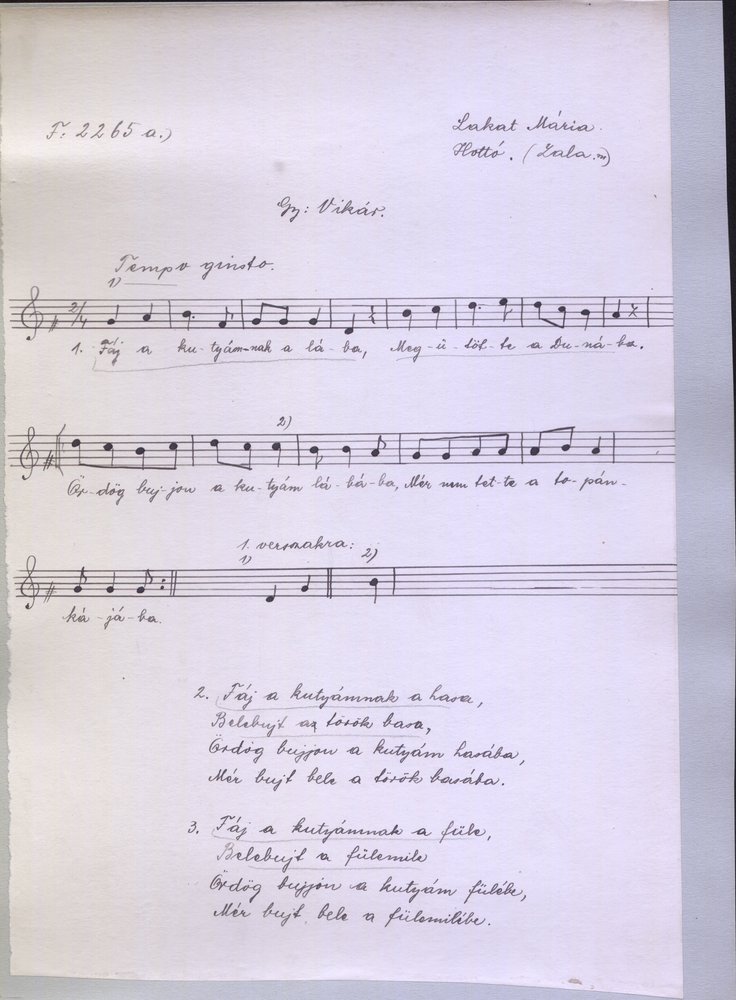 F: 2265 a.)
Lakat Mária.
Hottó. (Zala.m)
Gy: Vikár.
Tempo giusto.
1)
2/4
1. Fáj a ku-tyám-nak a lá-ba, Meg-ü-töt-te a Du-ná-ba.
2)
Ör-dög buj-jon a ku-tyám lá-bá-ba, Mér nem tet-te a to-pán-
1. versszakra:
1) 2)
ká-já-ba.
2. Fáj a kutyámnak a hasa,
Belebujt az török basa,
Ördög bujjon a kutyám hasába,
Mér bujt bele a török basába.
3. Fáj a kutyámnak a füle,
Belebujt a fülemile
Ördög bujjon a kutyám fülébe,
Mér bujt bele a fülemilébe.